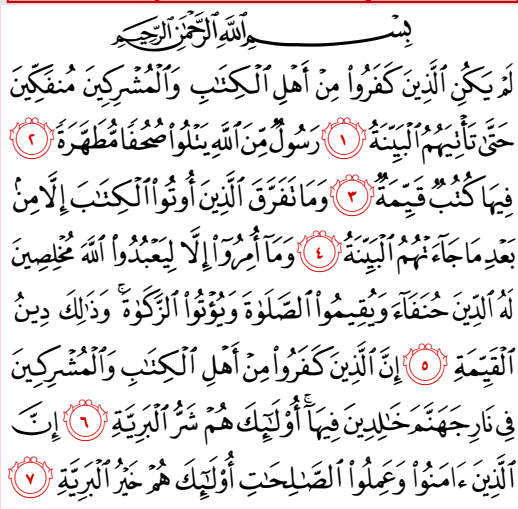 بِسْمِ ٱللَّهِ ٱلرَّحْمَٰنِ ٱلرَّحِيمِ
لَمْ يَكُنِ ٱلَّذِينَ كَفَرُوا۟ مِنْ أَهْلِ ٱلْكِتَٰبِ وَٱلْمُشْرِكِينَ مُنفَكِّينَ
حَتَّىٰ تَأْتِيَهُمُ ٱلْبَيِّنَةُ ١ رَسُولٌ مِّنَ ٱللَّهِ يَتْلُوا۟ صُحُفًا مُّطَهَّرَةً ٢
فِيهَا كُتُبٌ قَيِّمَةٌ ٣ وَمَا تَفَرَّقَ ٱلَّذِينَ أُوتُوا۟ ٱلْكِتَٰبَ إِلَّا مِنۢ
بَعْدِ مَا جَآءَتْهُمُ ٱلْبَيِّنَةُ ٤ وَمَآ أُمِرُوٓا۟ إِلَّا لِيَعْبُدُوا۟ ٱللَّهَ مُخْلِصِينَ
لَهُ ٱلدِّينَ حُنَفَآءَ وَيُقِيمُوا۟ ٱلصَّلَوٰةَ وَيُؤْتُوا۟ ٱلزَّكَوٰةَ ۚ وَذَٰلِكَ دِينُ
ٱلْقَيِّمَةِ ٥ إِنَّ ٱلَّذِينَ كَفَرُوا۟ مِنْ أَهْلِ ٱلْكِتَٰبِ وَٱلْمُشْرِكِينَ
فِى نَارِ جَهَنَّمَ خَٰلِدِينَ فِيهَآ ۚ أُو۟لَٰٓئِكَ هُمْ شَرُّ ٱلْبَرِيَّةِ ٦ إِنَّ
ٱلَّذِينَ ءَامَنُوا۟ وَعَمِلُوا۟ ٱلصَّٰلِحَٰتِ أُو۟لَٰٓئِكَ هُمْ خَيْرُ ٱلْبَرِيَّةِ ٧